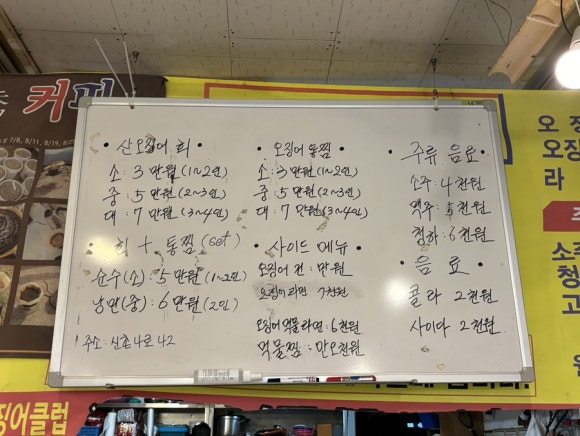 커피
7/8, 8/11, 8/19, 8/25
• 산오징어 회 •
소 : 3 만원 (1~2인)
중 : 5 만원 (2~3인)
대 : 7 만원 (3~4인)
• 회 + 통찜 (set)
순수(소) : 5 만원 (1~2인)
낭만(중) : 6 만원 (2인)
주소 : 신촌 4로 42
• 오징어 통찜 •
소 : 3 만원 (1~2인)
중 : 5 만원 (2~3인)
대 : 7 만원 (3~4인)
• 사이드 메뉴 •
오징어 전 : 만원
오징어 라면 7천원
오징어 먹물 라면 : 6천원
먹물찜 : 만오천원
• 주류 음료 •
소주 : 4 천원
맥주 : 5 천원
청하 : 6 천원
• 음료 •
콜라 2 천원
사이다 2 천원
오징
오징
라
주
소주
청
고
원
징어클럽